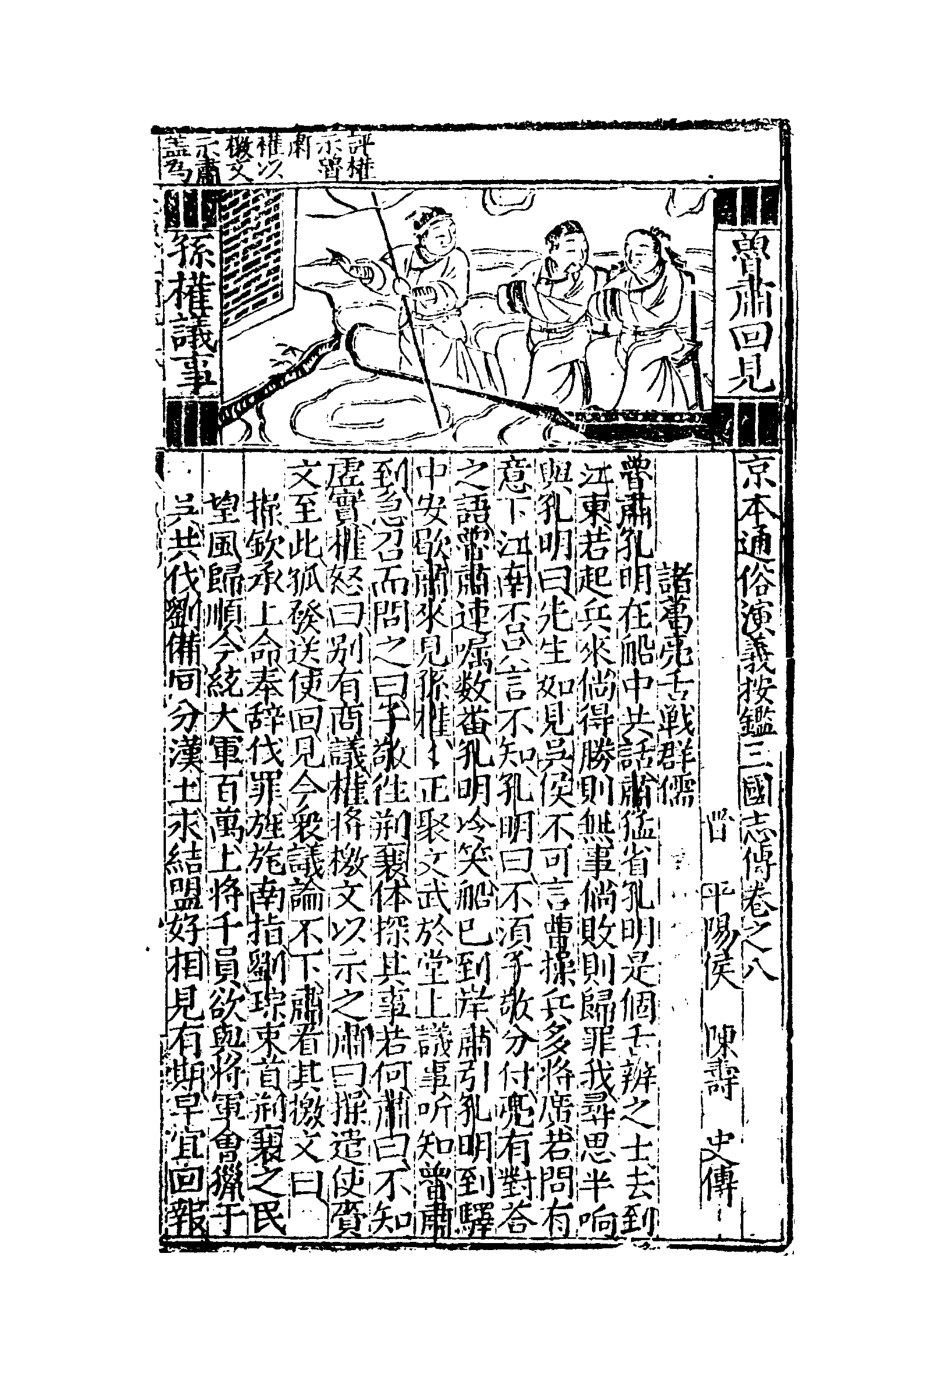 評權
示魯
肅
權以
檄文
示肅
蓋為
魯肅回見
孫權議事
京本通俗演義按鑑三國志傳卷之八
晉　平陽侯　陳壽　史傳
諸葛亮舌戰群儒
魯肅孔明在船中共話肅猛省孔明是個舌辨之士去到
江東若起兵來倘得勝則無事倘敗則歸罪我尋思半响
與孔明曰先生如見吳侯不可言曹操兵多將廣若問有
意下江南否只言不知孔明曰不須子敬分付亮有對荅
之語魯肅連囑数番孔明冷笑船已到岸肅引孔明到驛
中安歇肅來見孫權〻正聚文武於堂上議事听知魯肅
到急召而問之曰子敬徃荊襄体探其事若何肅曰不知
虛實權怒曰别有商議權將檄文以示之肅曰操造使賫
文至此孤發送使回見今衆議論不下肅看其檄文曰
操欽承上命奉辞伐罪旌旄南指劉琮束首荊襄之民
望風歸順今統大軍百萬上將千員欲與將軍會獵于
吴共伐劉備同分漢土求結盟好相見有期早宜回報